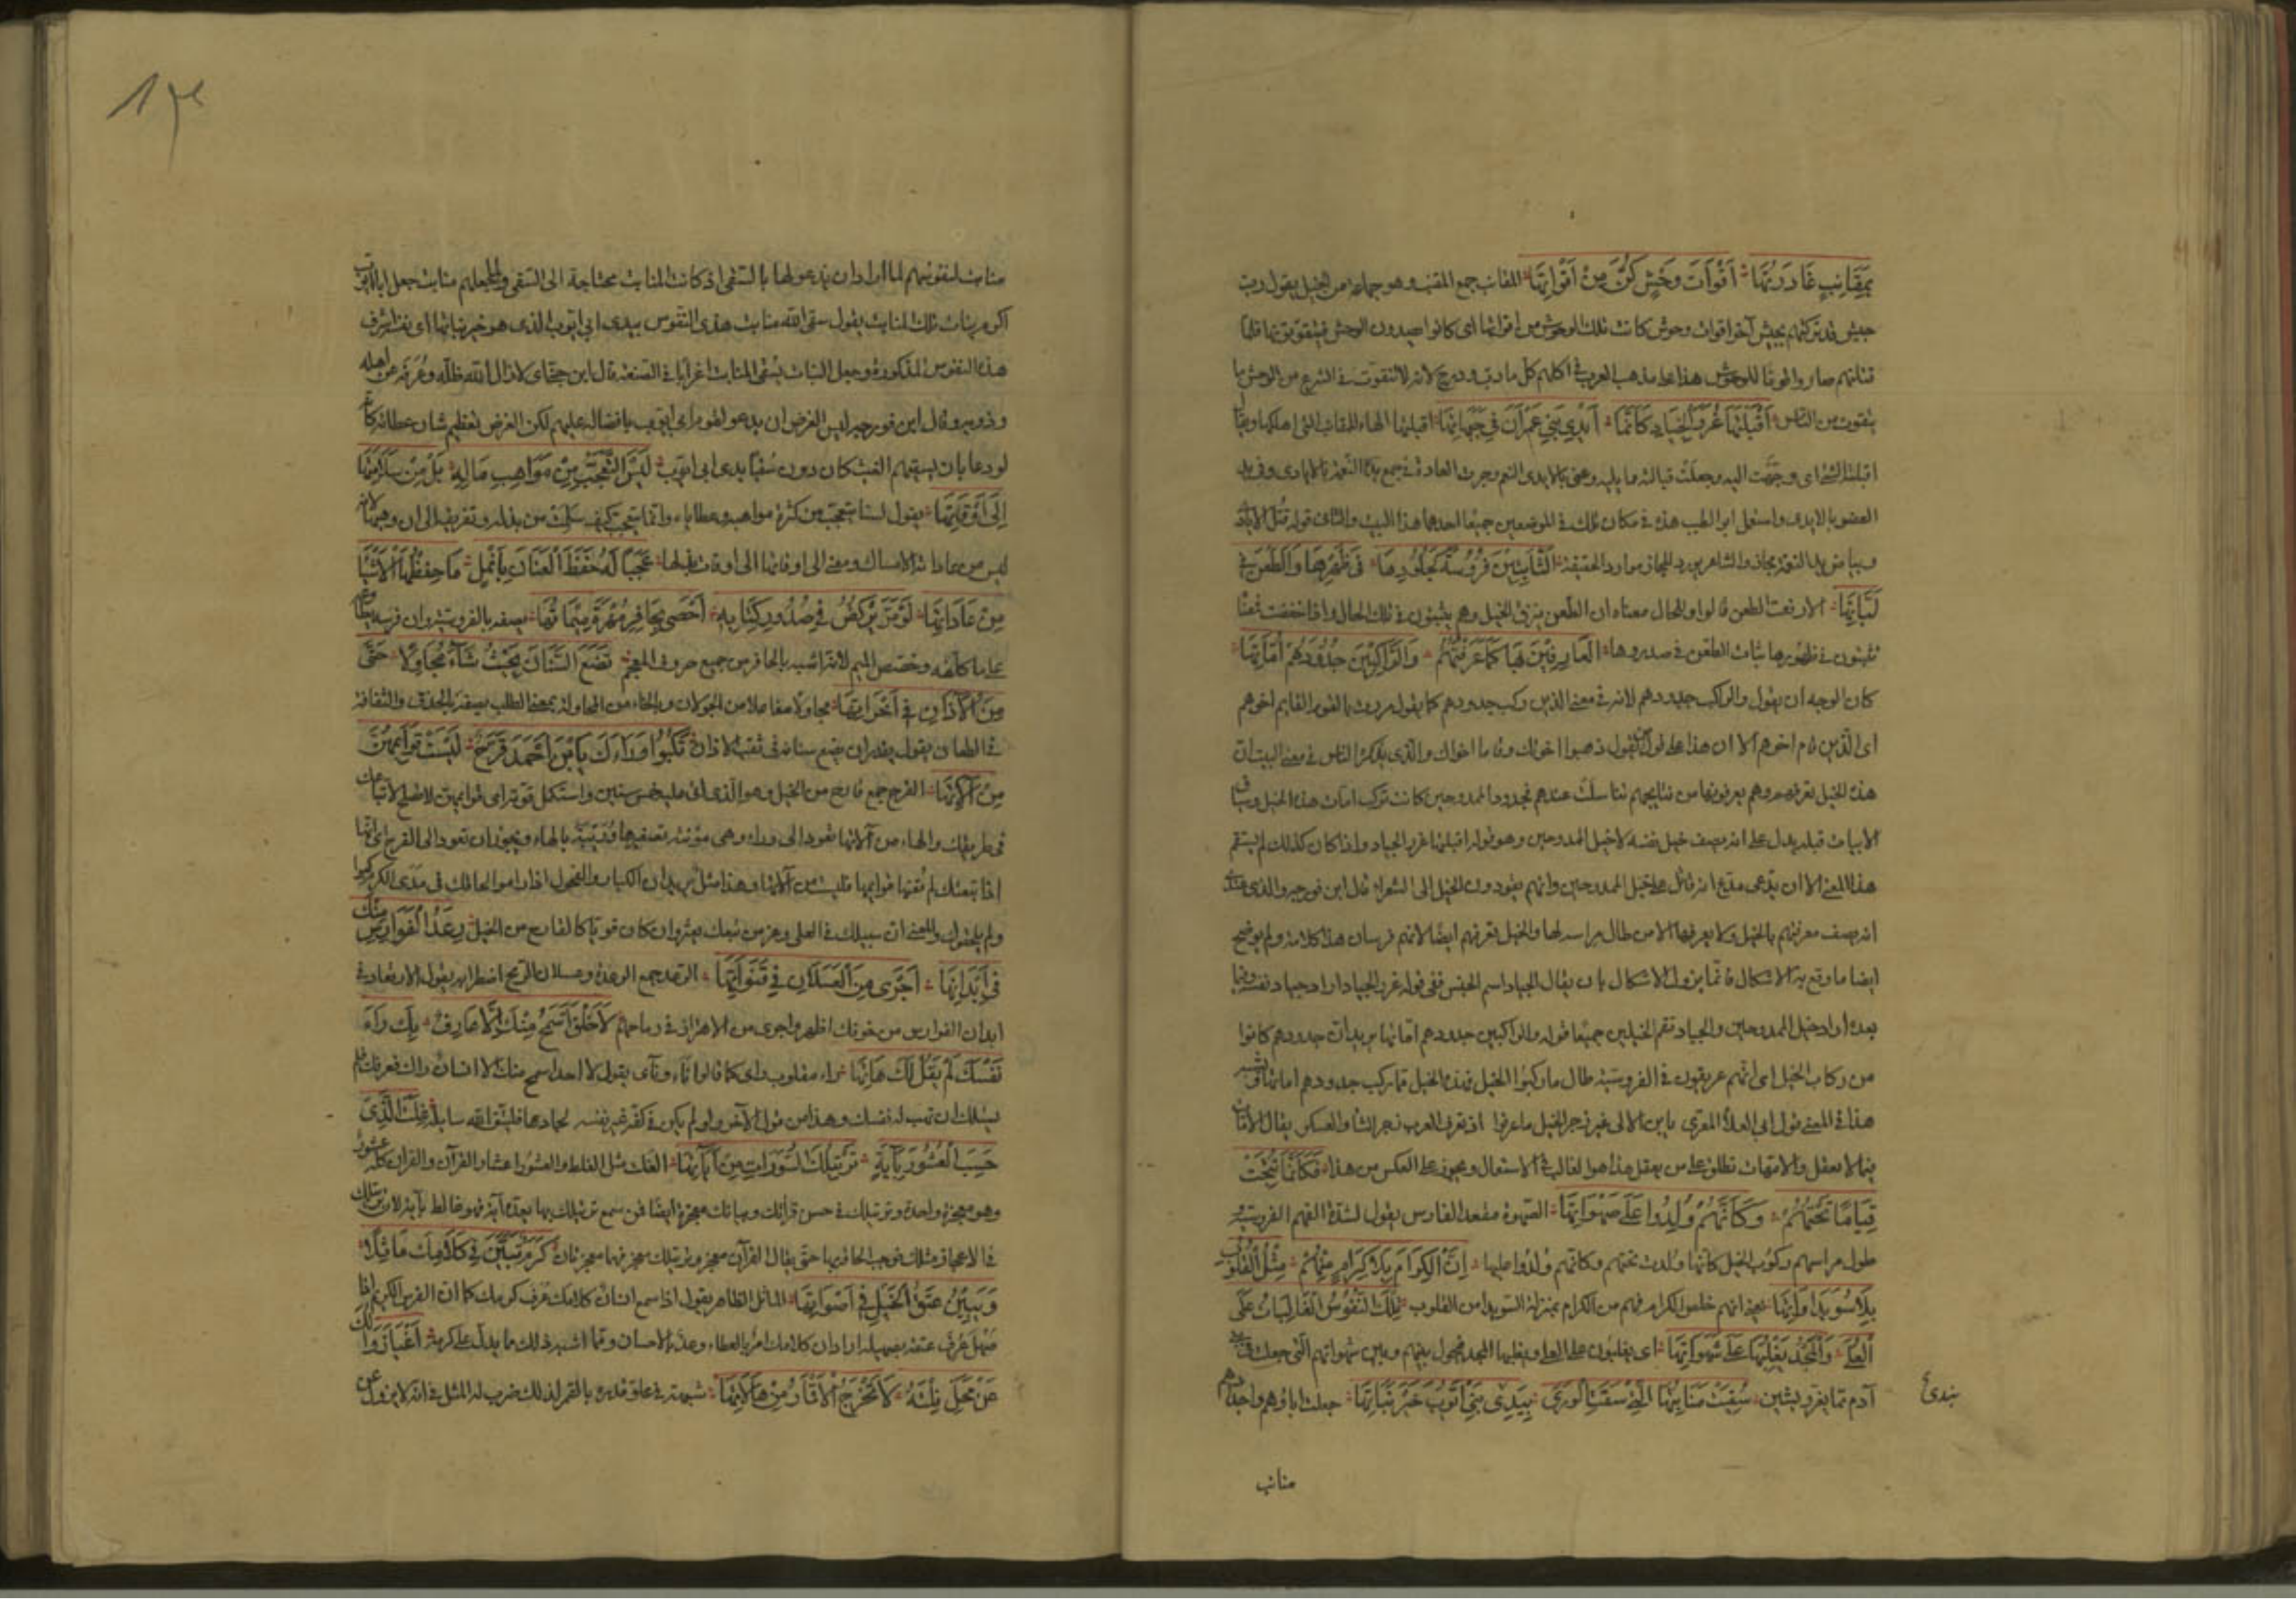 بِمَقَانِبٍ غَادَرْتُهَا أَقْوَاتَ وَحْشٍ كُنَّ مِنْ أَقْوَاتِهَا المقانب جمع المقنب وهو جماعة من الخيل يقول رب
جيش قد تركتهم بجيش آخر اقوات وحوش كانت تلك الوحوش من اقواتها اى كانوا يصيدون الوحش فيتقوتونها فلما
قتلتهم صاروا قوتا للوحوش هذا على مذهب العرب فى اكلهم كل ما دب ودرج لانه لا يتقوت فى الشرع من الوحش ما
يتقوت من الناس أَقْبَلْتُهَا غُرَرَ الْجِيَادِ كَأَنَّمَا أَيْدِي بَنِي عِمْرَانَ فِي جَبَهَاتِهَا اقبلتها الهاء للمقانب التى اهلكها
اقبلته الشئ اى وجهت اليه وجعلت قبالته ما يليه وعنى بالايدى النعم وجرت العادة فى جمع يد النعمة بالايادى وفى يد
العضو بالايدى واستعمل ابو الطيب هذه فى مكان تلك فى الموضعين جميعا احدهما هذا البيت والثانى قوله
وبياض يد النعمة مجاز والشاعر يورد المجاز موارد الحقيقة الثَّابِتِينَ فُرُوسَةً كَجُلُودِهَا فِي ظَهْرِهَا وَالطَّعْنُ فِي
لَبَّاتِهَا قالوا والحال معناه ان الطعن فى الخيل وهم يثبتون فى تلك الحال واذا
يثبتون فى ظهورها ثبات الطعن فى صدورها الْعَارِفِينَ بِهَا كَمَا عَرَفَتْهُمُ وَالرَّاكِبِينَ جُدُودُهُمْ أُمَّاتِهَا
كان الوجه ان يقول والراكب جدودهم لانه فى معنى الذين ركب جدودهم كما يقول مررت بالقوم القايم اخوهم
اى الذين قام اخوهم الا ان هذا على قول من يقول ذهبوا اخوتك وقاما اخواك والذى يذكره الناس فى معنى البيت ان
هذه الخيل تعرفهم وهم يعرفونها من نتايجهم تناسلت عندهم فجدود الممدوحين كانت تركب امات هذه الخيل وسياق
الابيات قبله يدل على انه يصف خيل نفسه لا خيل الممدوحين وهو قوله اقبلتها غرر الجياد واذا كان كذلك لم يستقم
هذا المعنى الا ان يدعى مدع انه قاتل على خيل الممدوحين وانهم يقودون الخيل الى الشعراء قال ابن فورجه والذى
انه يصف معرفتهم بالخيل ولا يعرفها الا من طال مراسه لها والخيل تعرفهم ايضا لانهم فرسان هذا كلامه ولم يوضح
ايضا ما وقع به الاشكال فانما يزول الاشكال بان يقال الجياد اسم الجنس ففى قوله غرر الجياد اراد جياد نفسه وفيما
بعده اراد خيل الممدوحين والجياد تعم الخيلين جميعا قوله والراكبين جدودهم اماتها يريد ان جدودهم كانوا
من ركاب الخيل اى انهم عريقون فى الفروسية طال ما ركبوا الخيل فهذه الخيل مما ركب جدودهم اماتها
هذا فى المعنى قول ابى العلاء المعرى يا بن الالى غير زجر الخيل ما عرفوا اذ تعرف العرب زجر الشاء والعكر يقال الامات
فيما لا يعقل والامهات تطلق على من يعقل هذا هو الغالب فى الاستعمال ويجوز على العكس من هذا فَكَأَنَّهَا نُتِجَتْ
قِيَامًا تَحْتَهُمْ وَكَأَنَّهُمْ وُلِدُوا عَلَى صَهَوَاتِهَا الصهوة مقعد الفارس يقول لشدة الفهم الفروسية
طول مراسهم ركوب الخيل كانها ولدت تحتهم وكانهم ولدوا عليها إِنَّ الْكِرَامَ بِلَا كِرَامٍ مِنْهُمُ مِثْلُ الْقُلُوبِ
بِلَا سُوَيْدَاوَاتِهَا يعنى انهم خلص الكرام فهم من الكرام بمنزلة السويداء من القلوب تِلْكَ النُّفُوسُ الْغَالِبَاتُ عَلَى
الْعُلَى وَالْمَجْدُ يَغْلِبُهَا عَلَى شَهَوَاتِهَا اى يغلبون على العلى ويغلبها المجد فيحول بينهم وبين شهواتهم التى جعلت فى بنى
آدم مما يعر ويشين سُقِيَتْ مَنَابِتُهَا الَّتِي سَقَتِ الْوَرَى بِيَدَيْ بَنِي أَيُّوبَ خَيْرُ نَبَاتِهَا جعلت اباؤهم واجدادهم
بندى
منابت
منابت لنفوسهم لما اراد ان يدعو لها بالسقى اذ كانت المنابت محتاجة الى السقى ولما جعلهم منابت جعل ابا ايوب
اكرم نبات تلك المنابت يقول سقى الله منابت هذه النفوس بيدى ابى ايوب الذى هو خير نباتها اى نفسه اشرف
هذه النفوس المذكورة وجعل النبات يسقى المنابت اغرابا فى الصنعة قال ابن جنى اى لا زال الله ظله وعرفه عن اهله
وذويه وقال ابن فورجه ليس الغرض ان يدعو لقوم ابى ايوب بافضاله عليهم لكن الغرض تعظيم شان عطائه كانه
لو دعا بان يسقيهم الغيث كان دون سقيا يدى ابى ايوب لَيْسَ التَّعَجُّبُ مِنْ مَوَاهِبِ مَالِهِ بَلْ مِنْ سَلَامَتِهَا
إِلَى أَوْقَاتِهَا يقول لسنا نتعجب من كثرة مواهبه وعطاياه وانما نتعجب كيف سلمت من بذله وتفريقه الى ان وهبها لانه
ليس من عاداته الامساك ومعنى الى اوقاتها الى اوقات بذلها عَجَبًا لَهُ حَفِظَ الْعِنَانَ بِأَنْمُلٍ مَا حِفْظُهَا الْأَشْيَاءَ
مِنْ عَادَاتِهَا لَوْ مَرَّ يَرْكُضُ فِي سُطُورِ كِتَابِهِ أَحْصَى بِحَافِرِ مُهْرِهِ مِيمَاتِهَا يصفه بالفروسية وان فرسه يطاوعه
على ما كلفه وخصص الميم لانه اشبه بالحافر من جميع حروف المعجم يَضَعُ السِّنَانَ بِحَيْثُ شَاءَ مُجَاوِلًا حَتَّى
مِنَ الْآذَانِ فِي أَخْرَاتِهَا مجاولا مفاعلا من الجولان وبالحاء من المحاولة بمعنى الطلب يصفه بالحذق والثقافة
فى الطعان يقول يقدر ان يضع سنانه فى ثقب الاذان تَكْبُو وَرَاءَكَ يَا بْنَ أَحْمَدَ قُرَّحٌ لَيْسَتْ قَوَائِمُهُنَّ
مِنْ آلَاتِهَا القرح جمع قارح من الخيل وهو الذى اتى عليه خمس سنين واستكمل قوته اى قوايمهن لا تصلح لاتباعك
فى طريقك والهاء من آلاتها تعود الى وراء وهى مؤنثة تصغيرها وريئة بالهاء ويجوز ان تعود الى القرح اى انها
اذا تبعتك لم تعنها قوايمها فليست من آلاتها وهذا مثل يريد ان الكبار والفحول اذا راموا لحاقك فى مدى الكرم كبوا
ولم يلحقوك والمعنى ان سبيلك فى العلى وعر من تبعك يعثر وان كان قويا كالقارح من الخيل رِعَدُ الْفَوَارِسِ مِنْكَ
فِي أَبْدَانِهَا أَجْرَى مِنَ الْعَسَلَانِ فِي قَنَوَاتِهَا الرعد جمع الرعدة وعسلان الرمح اضطرابه يقول الارتعاد فى
ابدان الفوارس من خوفك اظهر واجرى من الاهتزاز فى رماحهم لَا خَلْقَ أَسْمَحُ مِنْكَ إِلَّا عَارِفٌ بِكَ رَاءَ
نَفْسَكَ لَمْ يَقُلْ لَكَ هَاتِهَا راء مقلوب راى كما قالوا ناء ونأى يقول لا احد اسمح منك الا انسان راك فعرفك فلم
يسئلك ان تهب له نفسك وهذا من قول الآخر ولو لم يكن فى كفه غير نفسه لجاد بها فليتق الله سايله غَلِتَ الَّذِي
حَسَبَ الْعُشُورَ بِآيَةٍ تَرْتِيلُكَ السُّوَرَاتِ مِنْ آيَاتِهَا الغلت مثل الغلط والعشور اعشار القرآن والقران كله
وهو معجزة واحدة وترتيلك فى حسن قراتك وبيانك معجزة ايضا فمن سمع ترتيلك بها يعده آية فهو غالط بآية لان ترتيلك
فى الاعجاز مثلك فوجب الحاقه بها حتى يقال القرآن معجز وترتيلك معجز فهما معجزتان كَرَمٌ تَبَيَّنَ فِي كَلَامِكَ مَاثِلًا
وَيَبِينُ عِتْقُ الْخَيْلِ فِي أَصْوَاتِهَا الماثل الظاهر يقول اذا سمع انسان كلامك عرف كرمك كما ان الفرس الكريم اذا
صهل عرف عتقه بصهيله اراد ان كلامك امر بالعطاء وعدة بالاحسان وما اشبه ذلك مما يدل على كرمه أَعْيَا زَوَالُكَ
عَنْ مَحَلٍّ نِلْتَهُ لَا تَخْرُجُ الْأَقْمَارُ مِنْ هَالَاتِهَا شبهه فى علو قدره بالقمر لذلك ضرب له المثل فى انه لا يزول عن